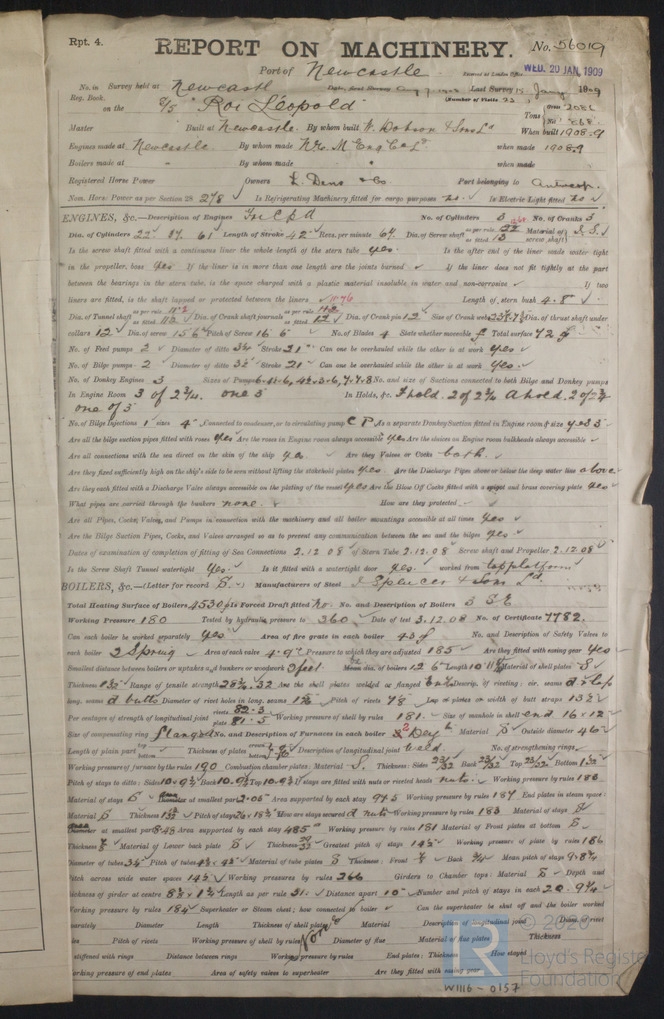 Rpt. 4.
REPORT ON MACHINERY. No. 56019
Port of Newcastle
Received at London Office WED. 20 JAN. 1909
No. in Survey held at Newcastle Date, first Survey Aug 7 1908 Last Survey 15 Jany 1909
Reg. Book. (Number of Visits 23)
on the S/S "Roi Léopold" Tons Gross 2081 Net 868
Master Built at Newcastle By whom built W. Dobson & Sons Ld When built 1908.9
Engines made at Newcastle By whom made N.E. M Eng Co Ld when made 1908.9
Boilers made at " By whom made " when made
Registered Horse Power Owners L. Dens & Co Port belonging to Antwerp
Nom. Horse Power as per Section 28 278 Is Refrigerating Machinery fitted for cargo purposes no. Is Electric Light fitted no
ENGINES, &c.—Description of Engines Tri C.P.D No. of Cylinders 3 No. of Cranks 3
Dia. of Cylinders 22 37 61 Length of Stroke 42 Revs. per minute 64 Dia. of Screw shaft as per rule as fitted 13 Material of screw shaft
Is the screw shaft fitted with a continuous liner the whole length of the stern tube yes. Is the after end of the liner made water tight
in the propeller boss yes If the liner is in more than one length are the joints burned If the liner does not fit tightly at the part
between the bearings in the stern tube, is the space charged with a plastic material insoluble in water and non-corrosive If two
liners are fitted, is the shaft lapped or protected between the liners Length of stern bush 4.8"
Dia. of Tunnel shaft as per rule 11.2 as fitted 11½ Dia. of Crank shaft journals as per rule as fitted 12 Dia. of Crank pin 12 Size of Crank webs Dia. of thrust shaft under
collars 12 Dia. of screw 15 6 Pitch of Screw 16 6 No. of Blades 4 State whether moveable Total surface 72
No. of Feed pumps 2 Diameter of ditto 3½ Stroke 21 Can one be overhauled while the other is at work yes
No. of Bilge pumps 2 Diameter of ditto 3½ Stroke 21 Can one be overhauled while the other is at work yes.
No. of Donkey Engines 3 Sizes of Pumps No. and size of Suctions connected to both Bilge and Donkey pumps
In Engine Room 3 of 2¾. one 3 In Holds, &c. F hold. 2 of 2¾ A hold. 2 of 2¾
one of 3
No. of Bilge Injections 1 sizes 4 Connected to condenser, or to circulating pump C P. Is a separate Donkey Suction fitted in Engine room & size yes 3
Are all the bilge suction pipes fitted with roses yes Are the roses in Engine room always accessible yes Are the sluices on Engine room bulkheads always accessible
Are all connections with the sea direct on the skin of the ship yes Are they Valves or Cocks both.
Are they fixed sufficiently high on the ship's side to be seen without lifting the stokehold plates yes. Are the Discharge Pipes above or below the deep water line above
Are they each fitted with a Discharge Valve always accessible on the plating of the vessel yes Are the Blow Off Cocks fitted with a spigot and brass covering plate yes
What pipes are carried through the bunkers none. How are they protected
Are all Pipes, Cocks, Valves, and Pumps in connection with the machinery and all boiler mountings accessible at all times yes
Are the Bilge Suction Pipes, Cocks, and Valves arranged so as to prevent any communication between the sea and the bilges yes
Dates of examination of completion of fitting of Sea Connections 2.12.08 of Stern Tube 2.12.08 Screw shaft and Propeller 2.12.08
Is the Screw Shaft Tunnel watertight yes. Is it fitted with a watertight door yes. worked from top platform
BOILERS, &c.—(Letter for record S) Manufacturers of Steel J Spencer & Sons Ld
Total Heating Surface of Boilers 4530 Is Forced Draft fitted no. No. and Description of Boilers 3 S.E
Working Pressure 180 Tested by hydraulic pressure to 360 Date of test 3.12.08 No. of Certificate 7782.
Can each boiler be worked separately yes Area of fire grate in each boiler 43 No. and Description of Safety Valves to
each boiler 2 Spring Area of each valve 4.9 Pressure to which they are adjusted 185 Are they fitted with easing gear yes
Smallest distance between boilers or uptakes and bunkers or woodwork 3 feet. Mean dia. of boilers 12 6 Length 10 Material of shell plates S
Thickness Range of tensile strength 28½.32 Are the shell plates welded or flanged Descrip. of riveting: cir. seams d r lap
long. seams d butts Diameter of rivet holes in long. seams Pitch of rivets 7⅞ Lap of plates or width of butt straps 13½
Per centages of strength of longitudinal joint rivets 82.3 plate 81.5 Working pressure of shell by rules 181 Size of manhole in shell end 16 x 12
Size of compensating ring flanged No. and Description of Furnaces in each boiler 2 Material S Outside diameter 46
Length of plain part top bottom Thickness of plates crown bottom Description of longitudinal joint weld No. of strengthening rings
Working pressure of furnace by the rules 190 Combustion chamber plates: Material S. Thickness: Sides Back Top Bottom
Pitch of stays to ditto: Sides Back Top If stays are fitted with nuts or riveted heads nuts Working pressure by rules 183
Material of stays S at smallest part 2.05 Area supported by each stay 97.5 Working pressure by rules 187 End plates in steam space:
Material S Thickness Pitch of stays How are stays secured d nuts Working pressure by rules 183 Material of stays S
at smallest part Area supported by each stay 485 Working pressure by rules 181 Material of Front plates at bottom S
Thickness ⅞ Material of Lower back plate S Thickness Greatest pitch of stays 14½ Working pressure of plate by rules 186
Diameter of tubes 3¼ Pitch of tubes Material of tube plates S Thickness: Front ⅞ Back ¾ Mean pitch of stays 9 x 8¾
Pitch across wide water spaces 14½ Working pressures by rules 266 Girders to Chamber tops: Material S Depth and
thickness of girder at centre Length as per rule 31. Distance apart 10 Number and pitch of stays in each 20. 9¾
Working pressure by rules 184 Superheater or Steam chest; how connected to boiler Can the superheater be shut off and the boiler worked
separately Diameter Length Thickness of shell plates Material Description of longitudinal joint Diam. of rivet
holes Pitch of rivets Working pressure of shell by rules None Diameter of flue Material of flue plates Thickness
If stiffened with rings Distance between rings Working pressure by rules End plates: Thickness How stayed
Working pressure of end plates Area of safety valves to superheater Are they fitted with easing gear
W1116-0157
© 2020
Lloyd's Register
Foundation